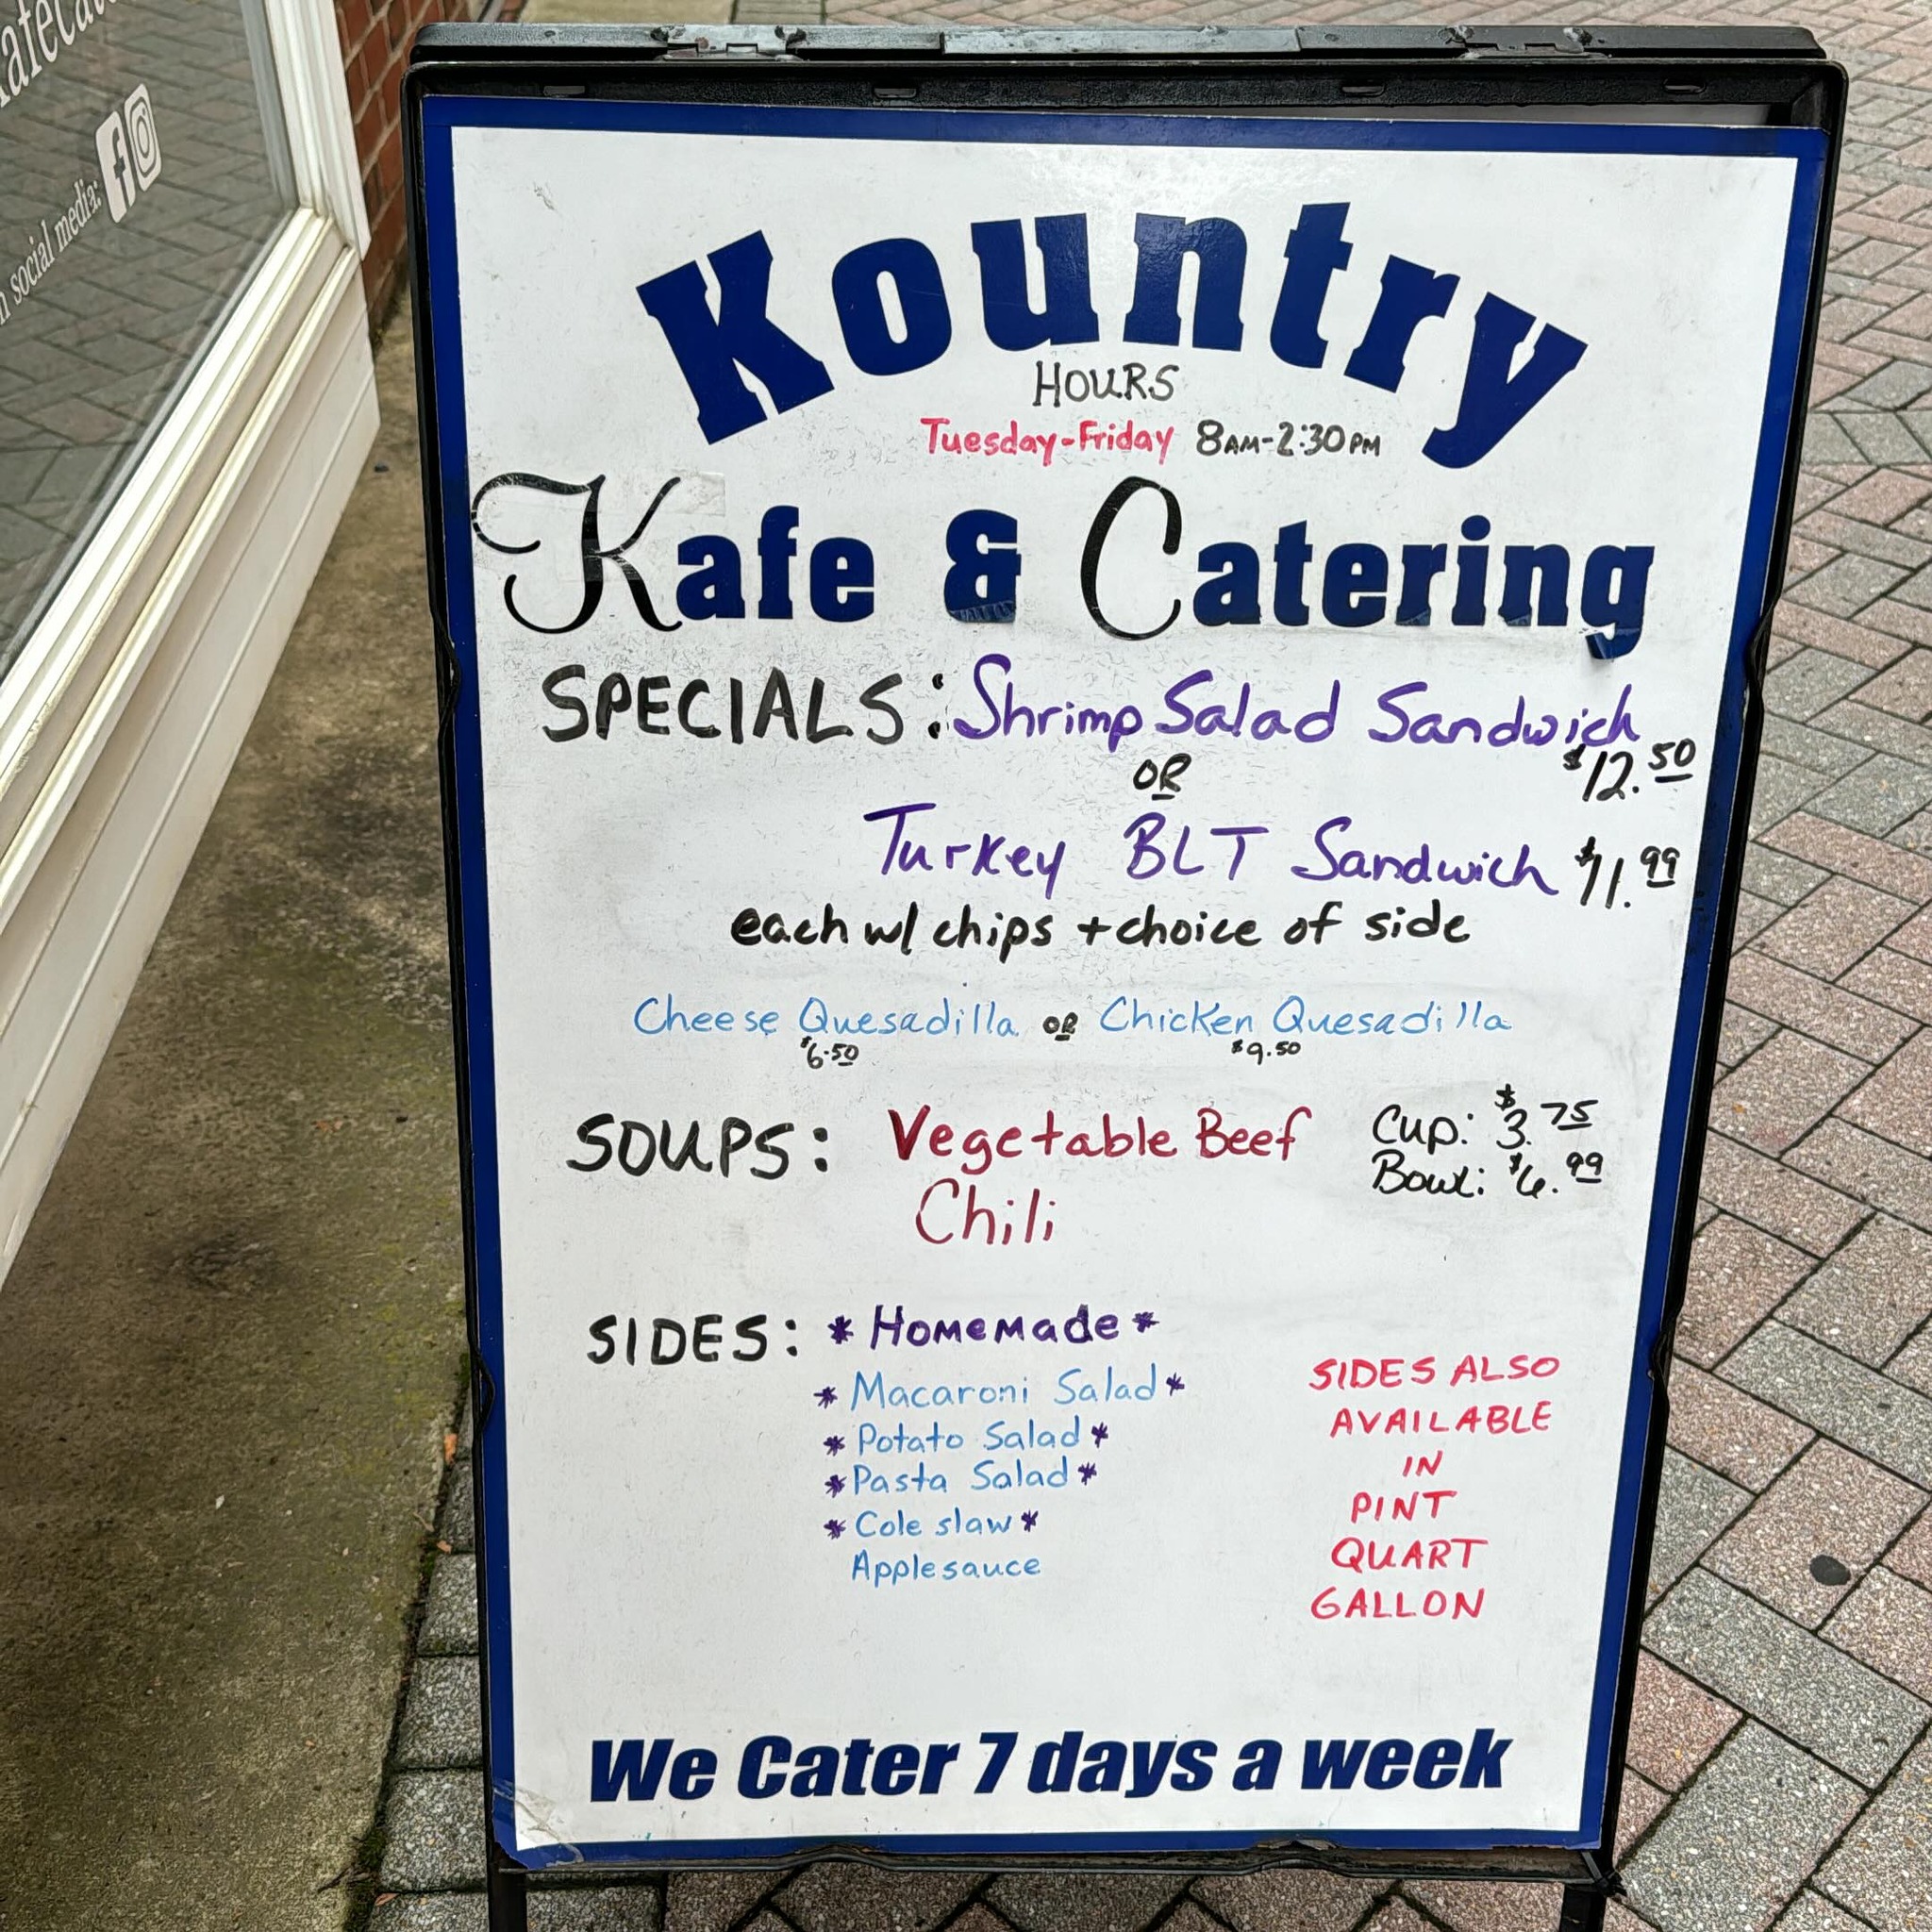 social media:
Kountry
HOURS
Tuesday-Friday 8AM-2:30PM
Kafe & Catering
SPECIALS: Shrimp Salad Sandwich
$12.50
OR
Turkey BLT Sandwich $11.99
each w/ chips + choice of side
Cheese Quesadilla OR Chicken Quesadilla
$6.50 $9.50
SOUPS: Vegetable Beef Cup: $3.75
Bowl: $6.99
Chili
SIDES: *Homemade*
*Macaroni Salad*
*Potato Salad*
*Pasta Salad*
*Cole slaw*
Applesauce
SIDES ALSO
AVAILABLE
IN
PINT
QUART
GALLON
We Cater 7 days a week